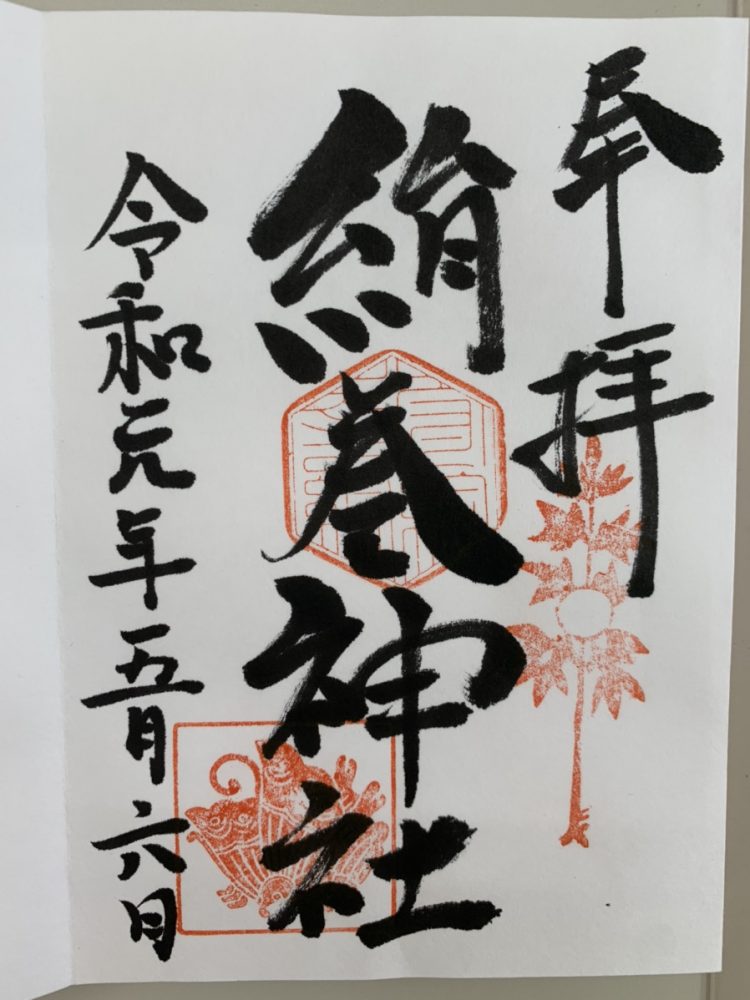 奉拝
絹巻神社
令和元年五月六日